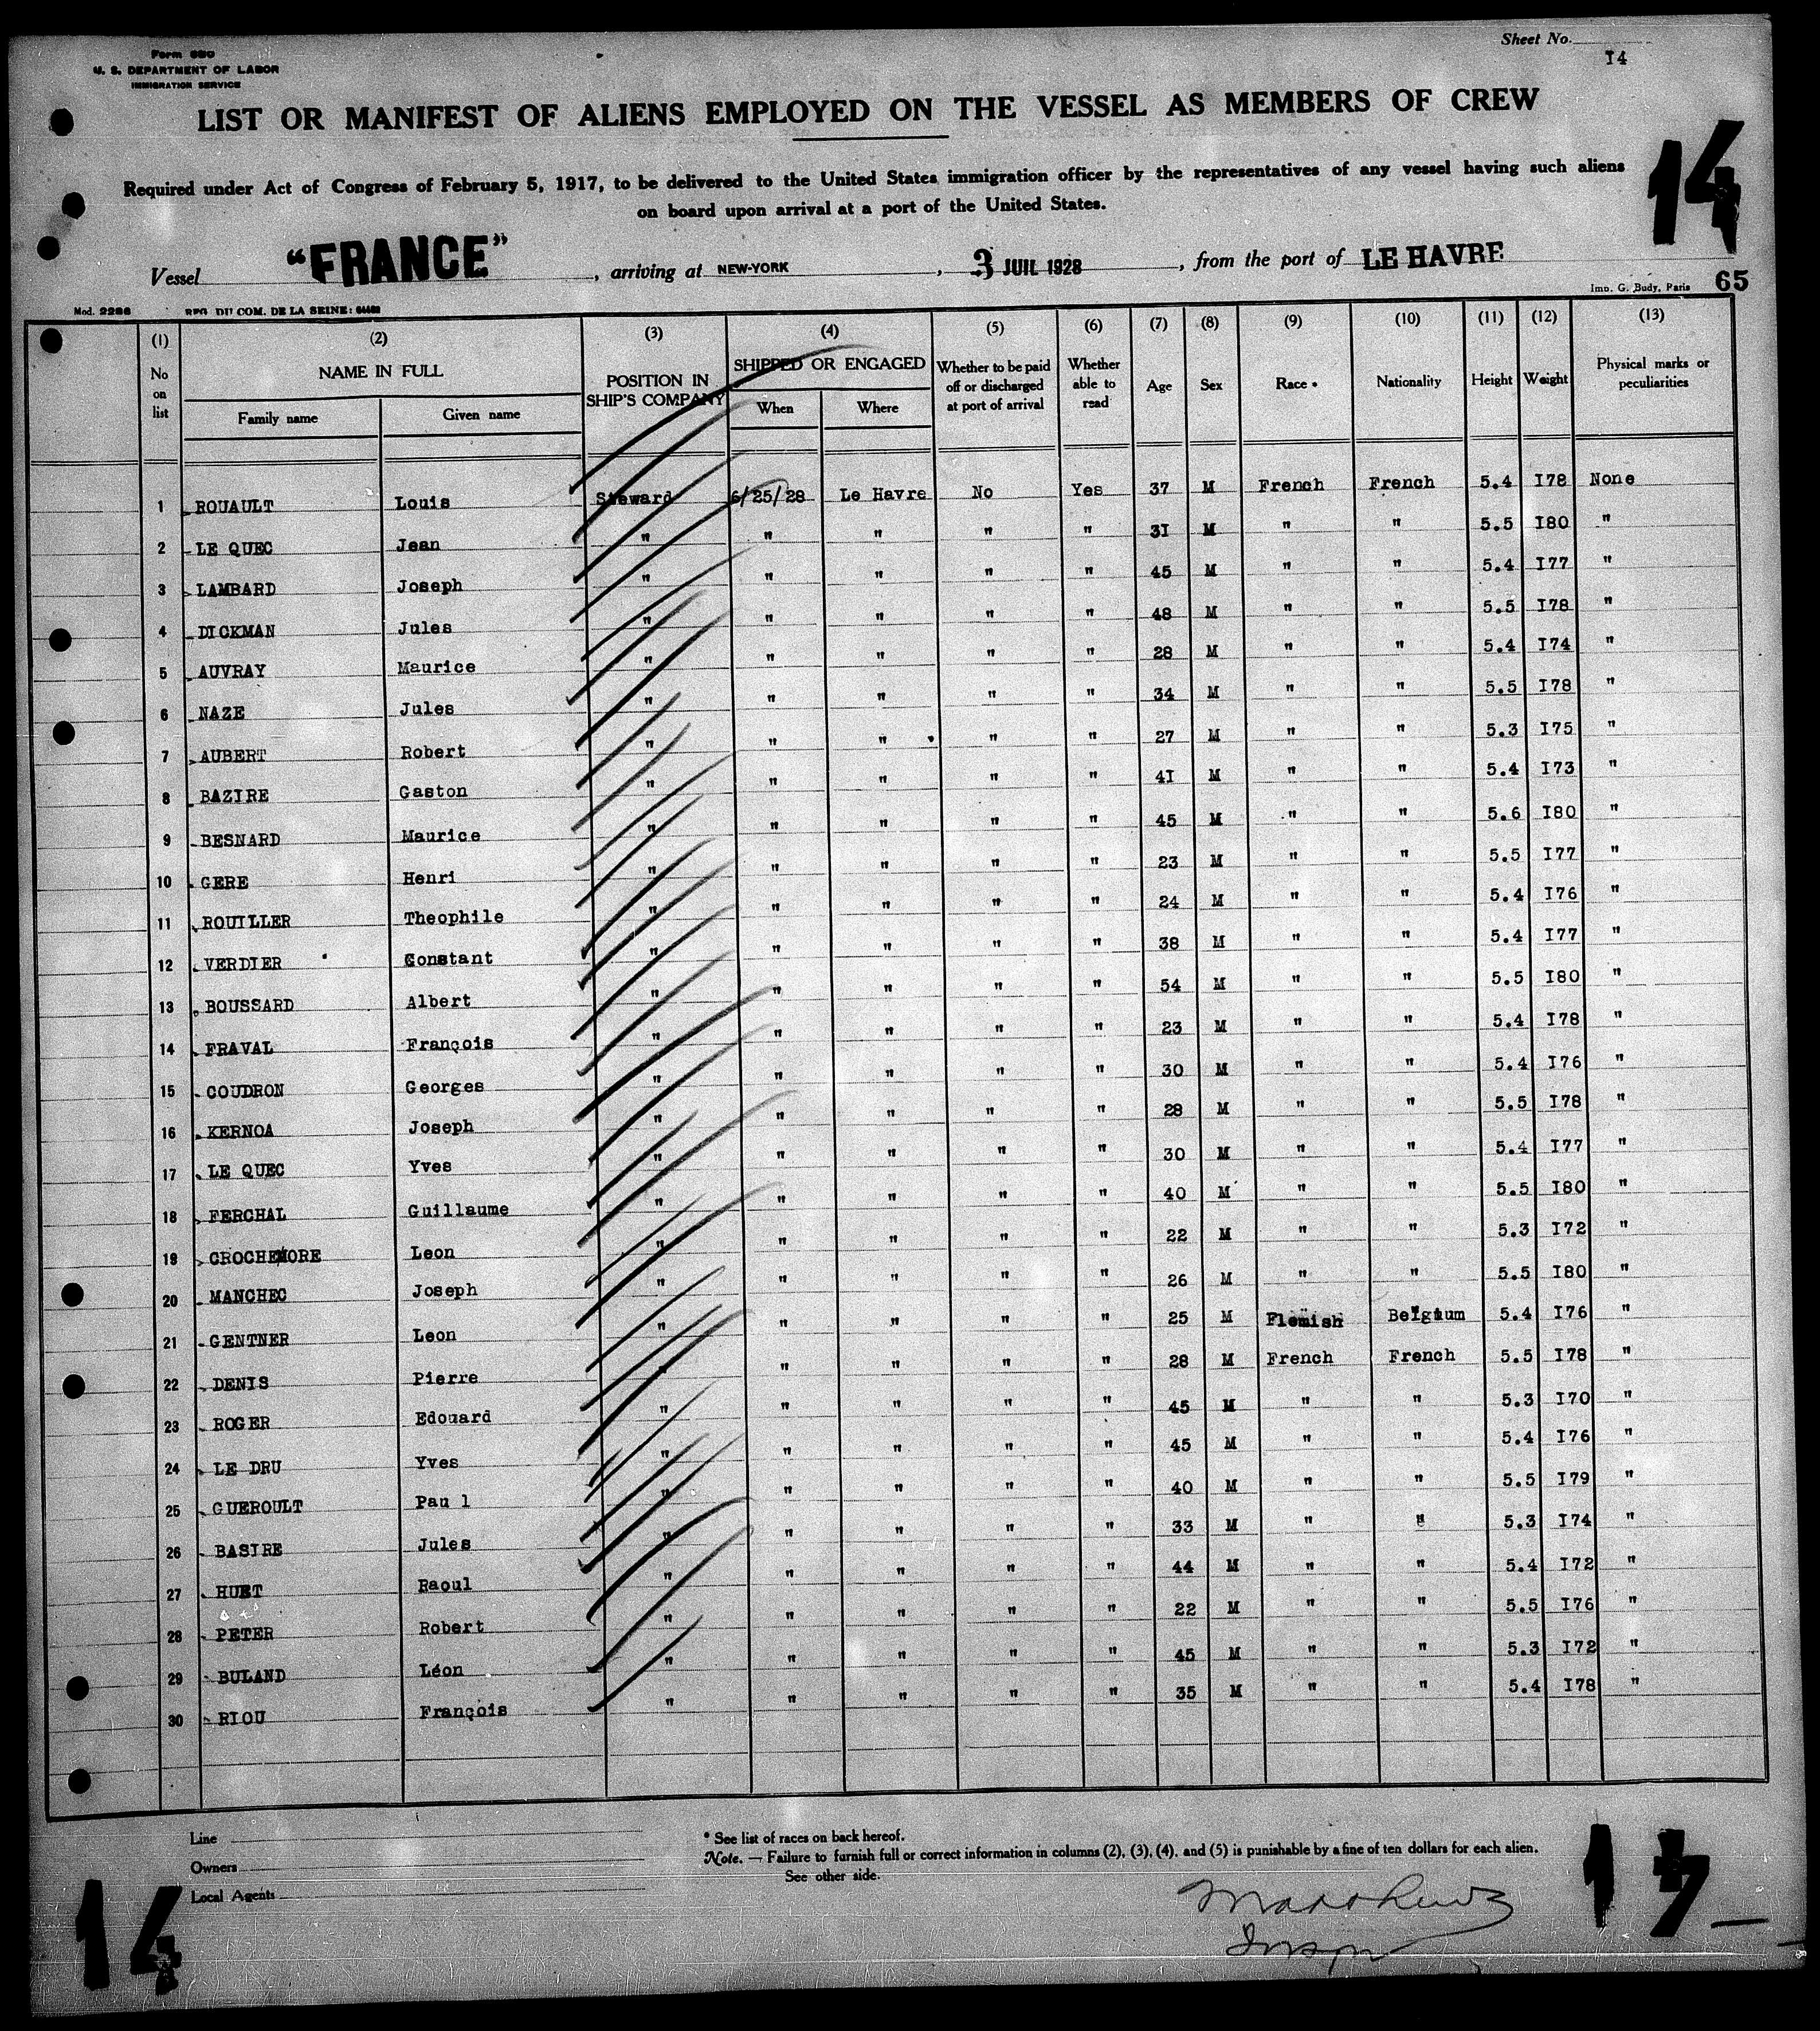 Form 680
U. S. DEPARTMENT OF LABOR
IMMIGRATION SERVICE
Sheet No.
I4
LIST OR MANIFEST OF ALIENS EMPLOYED ON THE VESSEL AS MEMBERS OF CREW
14
Required under Act of Congress of February 5, 1917, to be delivered to the United States immigration officer by the representatives of any vessel having such aliens
on board upon arrival at a port of the United States.
Vessel "FRANCE", arriving at NEW-YORK, 3 JUIL 1928, from the port of LE HAVRE
Imp. G. Budy, Paris 65
Mod. 2288 REG. DU COM. DE LA SEINE:
(1) (2) (3) (4) (5) (6) (7) (8) (9) (10) (11) (12) (13)
No on list NAME IN FULL POSITION IN SHIP'S COMPANY SHIPPED OR ENGAGED Whether to be paid off or discharged at port of arrival Whether able to read Age Sex Race * Nationality Height Weight Physical marks or peculiarities
Family name Given name When Where
1 ROUAULT Louis Steward 6/25/28 Le Havre No Yes 37 M French French 5.4 I78 None
2 LE QUEC Jean " " " " " 3I M " " 5.5 I80 "
3 LAMBARD Joseph " " " " " 45 M " " 5.4 I77 "
4 DICKMAN Jules " " " " " 48 M " " 5.5 I78 "
5 AUVRAY Maurice " " " " " 28 M " " 5.4 I74 "
6 NAZE Jules " " " " " 34 M " " 5.5 I78 "
7 AUBERT Robert " " " " " 27 M " " 5.3 I75 "
8 BAZIRE Gaston " " " " " 4I M " " 5.4 I73 "
9 BESNARD Maurice " " " " " 45 M " " 5.6 I80 "
10 GERE Henri " " " " " 23 M " " 5.5 I77 "
11 ROUILLER Theophile " " " " " 24 M " " 5.4 I76 "
12 VERDIER Constant " " " " " 38 M " " 5.4 I77 "
13 BOUSSARD Albert " " " " " 54 M " " 5.5 I80 "
14 FRAVAL François " " " " " 23 M " " 5.4 I78 "
15 COUDRON Georges " " " " " 30 M " " 5.4 I76 "
16 KERNOA Joseph " " " " " 28 M " " 5.5 I78 "
17 LE QUEC Yves " " " " " 30 M " " 5.4 I77 "
18 FERCHAL Guillaume " " " " " 40 M " " 5.5 I80 "
19 CROCHEMORE Leon " " " " " 22 M " " 5.3 I72 "
20 MANCHEC Joseph " " " " " 26 M " " 5.5 I80 "
21 GENTNER Leon " " " " " 25 M Flemish Belgium 5.4 I76 "
22 DENIS Pierre " " " " " 28 M French French 5.5 I78 "
23 ROGER Edouard " " " " " 45 M " " 5.3 I70 "
24 LE DRU Yves " " " " " 45 M " " 5.4 I76 "
25 GUEROULT Pau l " " " " " 40 M " " 5.5 I79 "
26 BASIRE Jules " " " " " 33 M " " 5.3 I74 "
27 HUET Raoul " " " " " 44 M " " 5.4 I72 "
28 PETER Robert " " " " " 22 M " " 5.5 I76 "
29 BULAND Léon " " " " " 45 M " " 5.3 I72 "
30 RIOU François " " " " " 35 M " " 5.4 I78 "
Line
Owners
Local Agents
* See list of races on back hereof.
Note. — Failure to furnish full or correct information in columns (2), (3), (4), and (5) is punishable by a fine of ten dollars for each alien.
See other side.
14
17